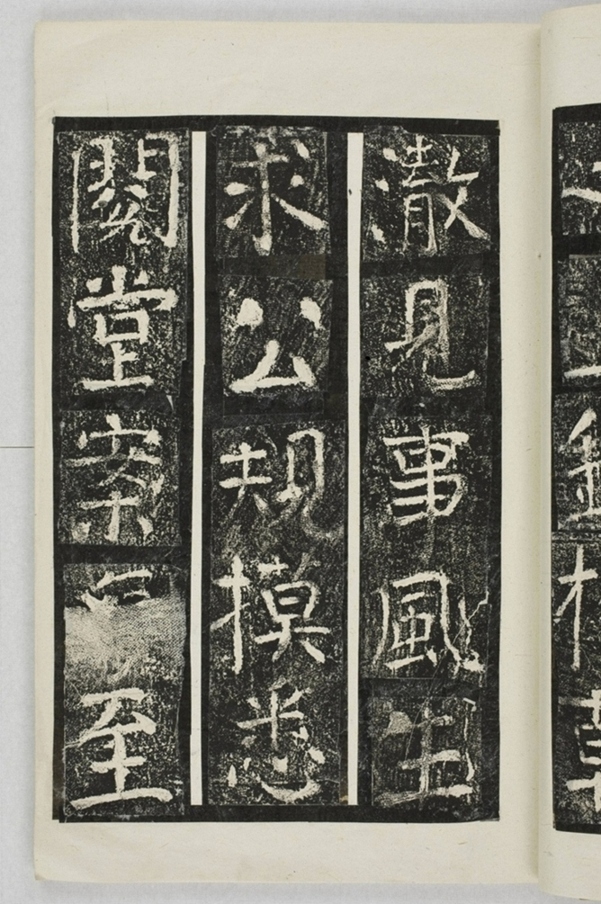 澈見事風生
求公規摸悉
閱堂案至